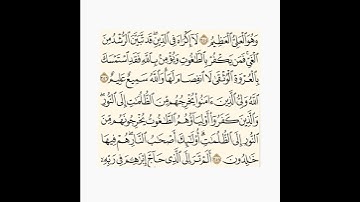 وَهُوَ ٱلْعَلِىُّ ٱلْعَظِيمُ ۝٢٥٥ لَآ إِكْرَاهَ فِى ٱلدِّينِ ۖ قَد تَّبَيَّنَ ٱلرُّشْدُ مِنَ
ٱلْغَىِّ ۚ فَمَن يَكْفُرْ بِٱلطَّٰغُوتِ وَيُؤْمِنۢ بِٱللَّهِ فَقَدِ ٱسْتَمْسَكَ
بِٱلْعُرْوَةِ ٱلْوُثْقَىٰ لَا ٱنفِصَامَ لَهَا ۗ وَٱللَّهُ سَمِيعٌ عَلِيمٌ ۝٢٥٦
ٱللَّهُ وَلِىُّ ٱلَّذِينَ ءَامَنُوا۟ يُخْرِجُهُم مِّنَ ٱلظُّلُمَٰتِ إِلَى ٱلنُّورِ ۖ
وَٱلَّذِينَ كَفَرُوٓا۟ أَوْلِيَآؤُهُمُ ٱلطَّٰغُوتُ يُخْرِجُونَهُم مِّنَ
ٱلنُّورِ إِلَى ٱلظُّلُمَٰتِ ۗ أُو۟لَٰٓئِكَ أَصْحَٰبُ ٱلنَّارِ ۖ هُمْ فِيهَا
خَٰلِدُونَ ۝٢٥٧ أَلَمْ تَرَ إِلَى ٱلَّذِى حَآجَّ إِبْرَٰهِۦمَ فِى رَبِّهِۦٓ